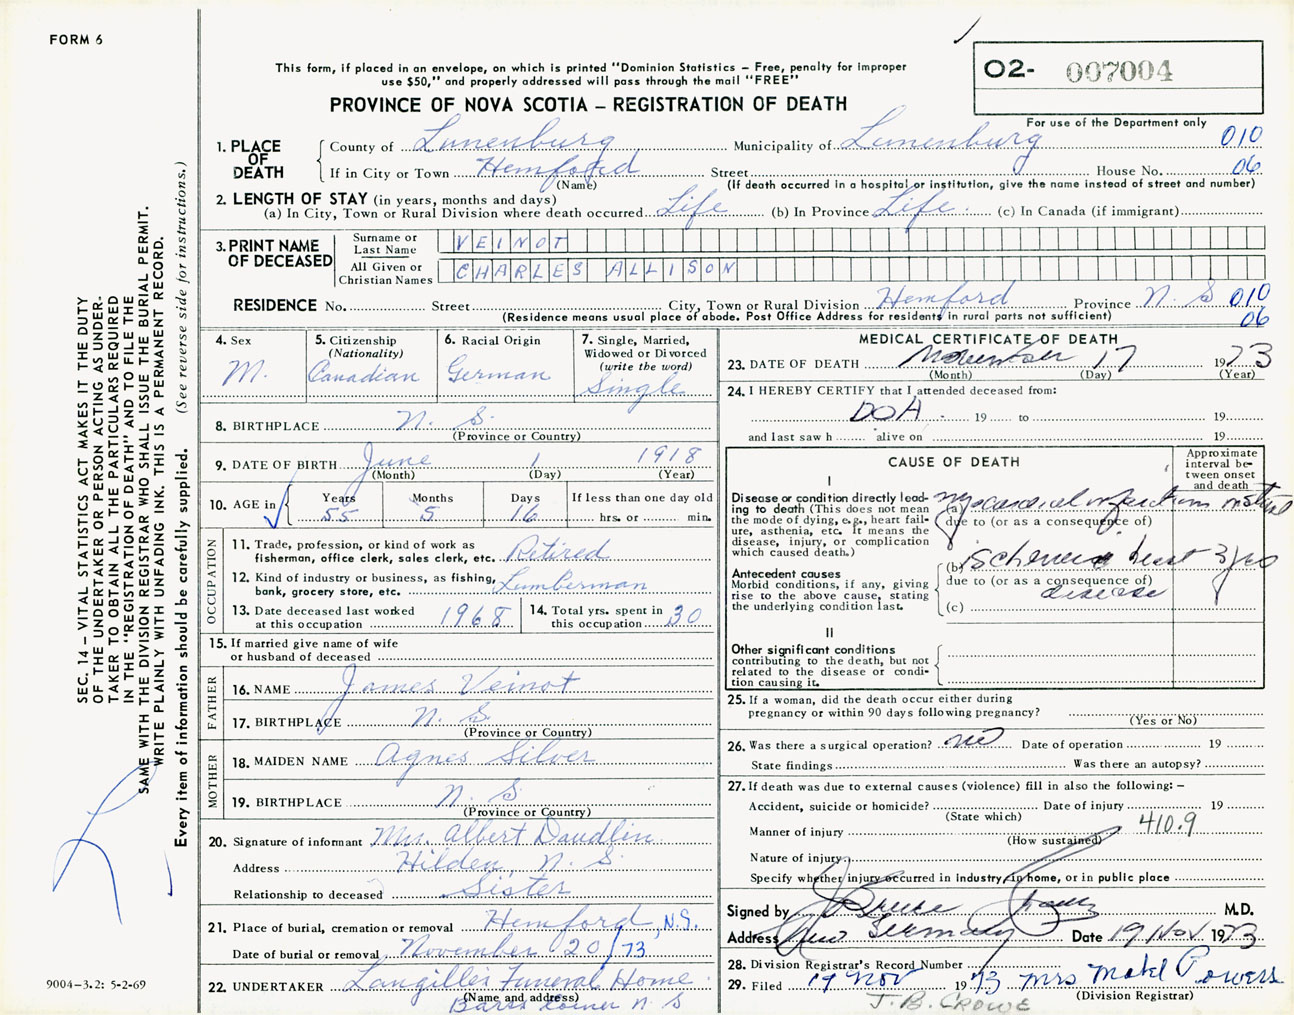 FORM 6
This form, if placed in an envelope, on which is printed "Dominion Statistics – Free, penalty for improper
use $50," and properly addressed will pass through the mail "FREE"
PROVINCE OF NOVA SCOTIA – REGISTRATION OF DEATH
O2- 007004
For use of the Department only
1. PLACE OF DEATH County of Lunenburg Municipality of Lunenburg 010
If in City or Town Hemford Street House No. 06
(Name) (If death occurred in a hospital or institution, give the name instead of street and number)
2. LENGTH OF STAY (in years, months and days)
(a) In City, Town or Rural Division where death occurred Life (b) In Province Life. (c) In Canada (if immigrant)
3. PRINT NAME OF DECEASED Surname or Last Name VEINOT
All Given or Christian Names CHARLES ALLISON
RESIDENCE No. Street City, Town or Rural Division Hemford Province N. S 010
(Residence means usual place of abode. Post Office Address for residents in rural parts not sufficient) 06
4. Sex M.
5. Citizenship (Nationality) Canadian
6. Racial Origin German
7. Single, Married, Widowed or Divorced (write the word) Single
8. BIRTHPLACE N. S.
(Province or Country)
9. DATE OF BIRTH June 1 1918
(Month) (Day) (Year)
10. AGE in Years Months Days If less than one day old
55 5 16 hrs. or min.
OCCUPATION
11. Trade, profession, or kind of work as
fisherman, office clerk, sales clerk, etc. Retired
12. Kind of industry or business, as fishing,
bank, grocery store, etc. Lumberman
13. Date deceased last worked
at this occupation 1968
14. Total yrs. spent in
this occupation 30
15. If married give name of wife
or husband of deceased
FATHER
16. NAME James Veinot
17. BIRTHPLACE N. S.
(Province or Country)
MOTHER
18. MAIDEN NAME Agnes Silver
19. BIRTHPLACE N. S.
(Province or Country)
20. Signature of informant Mrs. Albert Daudlin
Address Hilden, N. S.
Relationship to deceased Sister
21. Place of burial, cremation or removal Hemford, N.S.
Date of burial or removal November 20/73
22. UNDERTAKER Langille's Funeral Home
(Name and address)
Barss Corner N S
MEDICAL CERTIFICATE OF DEATH
23. DATE OF DEATH November 17 1973
(Month) (Day) (Year)
24. I HEREBY CERTIFY that I attended deceased from:
DOA 19 to 19
and last saw h alive on 19
CAUSE OF DEATH
Approximate interval between onset and death
I
Disease or condition directly lead-
ing to death (This does not mean
the mode of dying, e.g., heart fail-
ure, asthenia, etc. It means the
disease, injury, or complication
which caused death.)
(a) Myocardial infarction instant
due to (or as a consequence of)
Antecedent causes
Morbid conditions, if any, giving
rise to the above cause, stating
the underlying condition last.
(b) ischemic heart 3 yrs
due to (or as a consequence of)
disease
(c)
II
Other significant conditions
contributing to the death, but not
related to the disease or condi-
tion causing it.
25. If a woman, did the death occur either during
pregnancy or within 90 days following pregnancy?
(Yes or No)
26. Was there a surgical operation? no Date of operation 19
State findings Was there an autopsy?
27. If death was due to external causes (violence) fill in also the following: –
Accident, suicide or homicide? Date of injury 19
(State which)
Manner of injury 410.9
(How sustained)
Nature of injury
Specify whether injury occurred in industry, in home, or in public place
Signed by J Bruce M.D.
Address New Germany Date 19 Nov 1973
28. Division Registrar's Record Number
29. Filed 19 Nov 1973 Mrs Mabel Powers
(Division Registrar)
J. B. CROWE
SEC. 14 – VITAL STATISTICS ACT MAKES IT THE DUTY
OF THE UNDERTAKER OR PERSON ACTING AS UNDER-
TAKER TO OBTAIN ALL THE PARTICULARS REQUIRED
IN THE "REGISTRATION OF DEATH" AND TO FILE THE
SAME WITH THE DIVISION REGISTRAR WHO SHALL ISSUE THE BURIAL PERMIT.
WRITE PLAINLY WITH UNFADING INK. THIS IS A PERMANENT RECORD.
Every item of information should be carefully supplied. (See reverse side for instructions.)
9004-3.2: 5-2-69